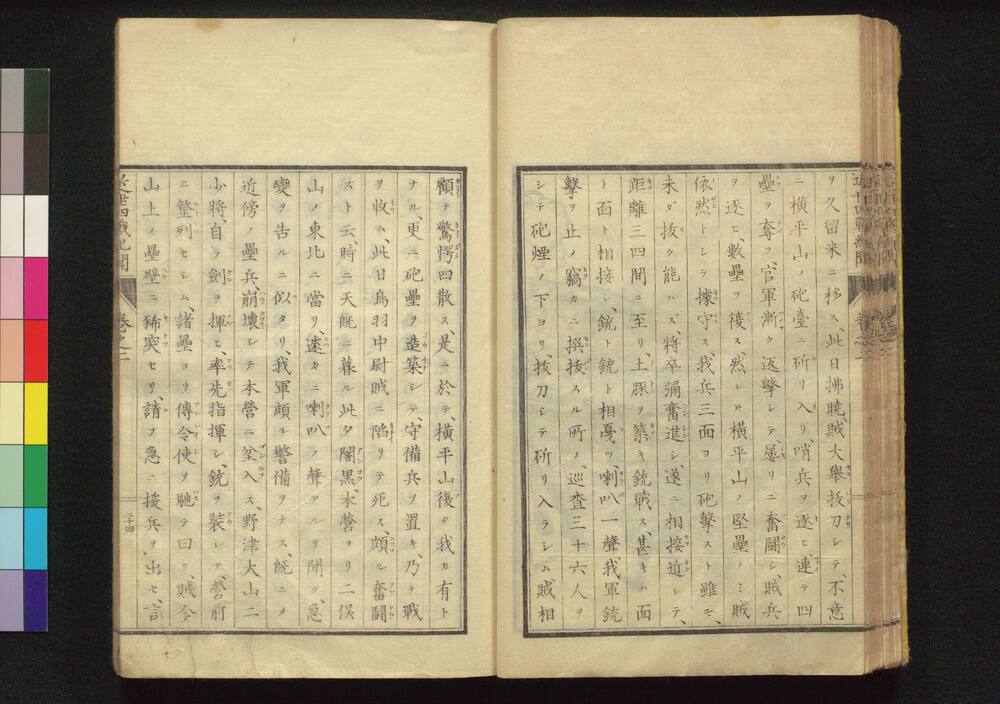 ヲ久留米ニ移ス、此日拂曉賊大擧抜刀シテ、不意
ニ橫平山ノ砲臺ニ斫リ入リ、哨兵ヲ逐ヒ、連テ四
壘ヲ奪フ、官軍漸ク返擊シテ、屡リニ奮鬪シ賊兵
ヲ逐ヒ、數壘ヲ復ス、然レ𪜈橫平山ノ堅壘ノミ賊
依然トシテ據守ス我兵三面ヨリ砲擊スト雖モ、
未ダ抜ク能ハズ、將卒彌奮進シ、遂ニ相接近シテ、
距離三四間ニ至リ、土豚ヲ築キ銃戰ス、甚キハ面
ト面ト相接シ、銃ト銃ト相戞ツ、喇叭一聲、我軍銃
擊ヲ止メ竊カニ撰抜スル所ノ、巡査三十六人ヲ
シテ砲煙ノ下ヨリ、抜刀シテ斫リ入ラシム賊相
顧テ驚愕四散ス、是ニ於テ、橫平山復タ我カ有ト
ナル、更ニ砲壘ヲ造築シテ、守備兵ヲ置キ、乃チ戰
ヲ收ム、此日鳥羽中尉賊ニ陷リテ死ス、頗ル奮鬪
スト云、時ニ天既ニ暮ル此夕闇黑、本營ヨリ二俣
山ノ東北ニ當リ、遽カニ喇叭ノ聲アルヲ聞ク、急
變ヲ告ルニ似タリ、我軍頗ル警備ヲナス、既ニメ
近傍ノ壘兵、崩壞シテ本營ニ坌入ス、野津大山二
少將、自ラ劍ヲ揮ヒ率先指揮シ、銃ヲ裝シテ、營前
ニ整列セシム、諸壘ヨリ傳令使ヲ馳テ曰ク、賊今
山上ノ壘壁ニ豨突セリ、請フ急ニ援兵ヲ出セ、言
卷之二
二十四